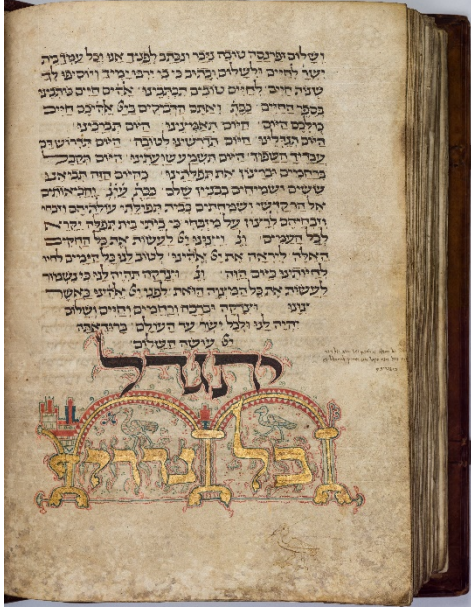 ושלום ופרנסה טובה ניזכר ונכתב לפניך אנו וכל עמך בית
ישר לחיים ולשלום וכתוב כי בי ירבו ימיך ויוסיפו לך
שנות חיים לחיים טובים תכתבינו אלהים חיים כותבינו
בספר החיים ככת ואתם הדבקים ביי אלהיכם חיים
כולכם היום היום תאמצינו היום תברכינו
היום תגדלינו היום תדרשנו לטובה היום תדרוש דם
עבדיך השפוך היום תשמע שועתינו היום תקבל
ברחמים וברצון את תפלתינו כהיום הזה תביאנו
ששים ושמחים בבנין שלם ככת והביאותים
אל הר קדשי ושמחתים בבית תפילתי עולותיהם וזבחי
וזבחיהם לרצון על מזבחי כי ביתי בית תפלה יקרא
לכל העמים ונ ויצוינו יי לעשות את כל החקים
האלה ליראה את יי אלהינו לטוב לנו כל הימים לחיו
לחיותינו כיום הזה ונ וצדקה תהיה לנו כי נשמור
לעשות את כל המצוה הזאת לפני יי אלהינו כאשר
ציונו וצדקה וברכה ורחמים וחיים ושלום
יהיה לנו ולכל ישר עד העולם ברוך אתה
יי עושה השלום
יתגדל
כל נדרי